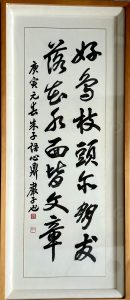 好鸟枝頭亦朋友
落花水面皆文章
庚寅元春朱子語心鼎嚴子也